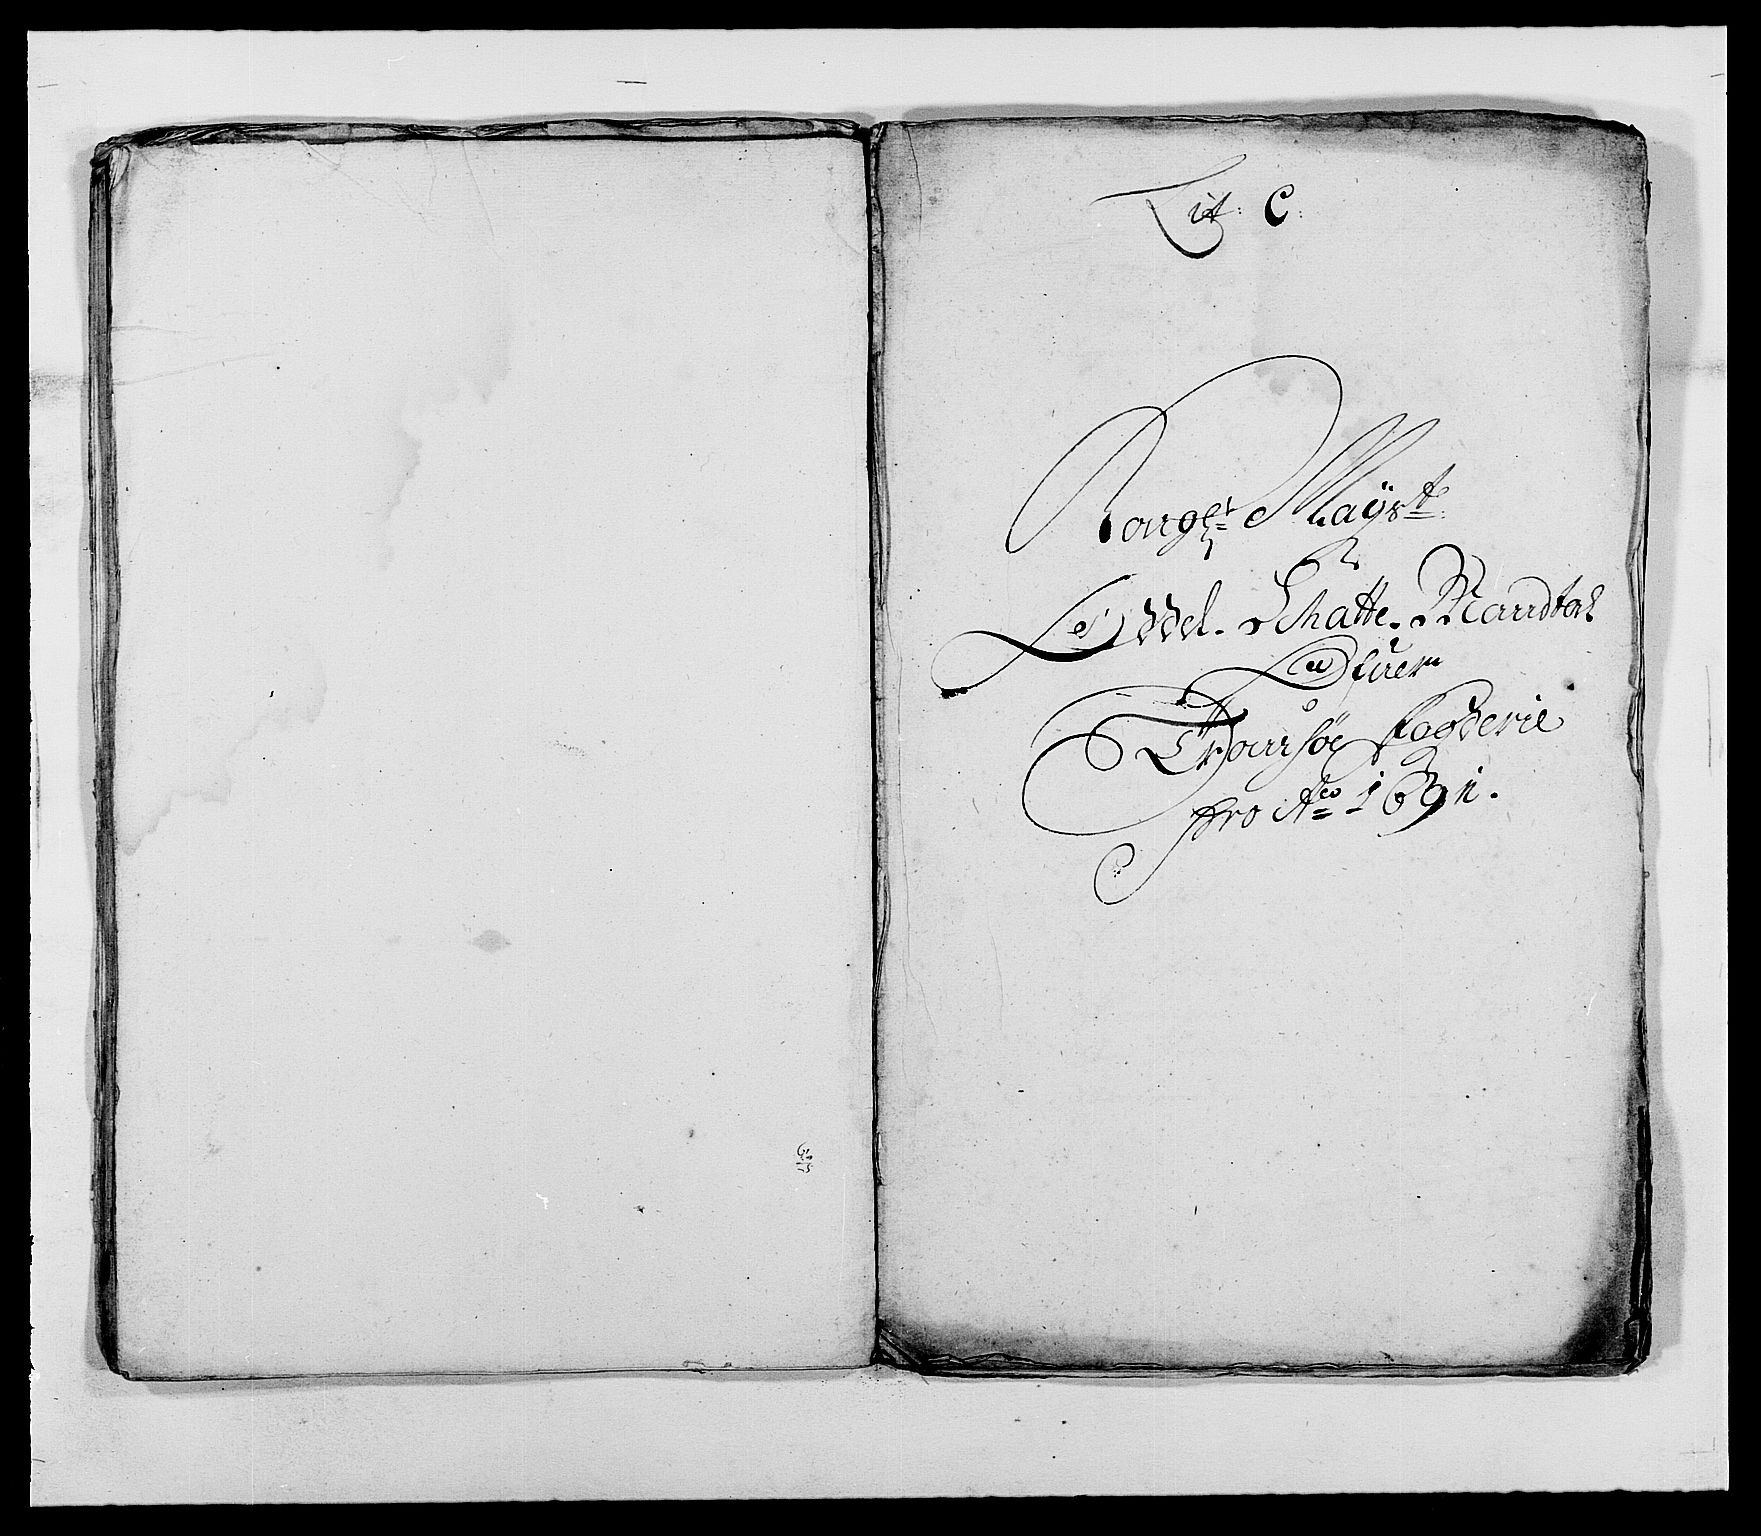 Lit: C:
Kongl: Mayst:
Leddel. Schatte. Mandtal
Udfuer
Tromsøe fogderie
pro Ao 1691.